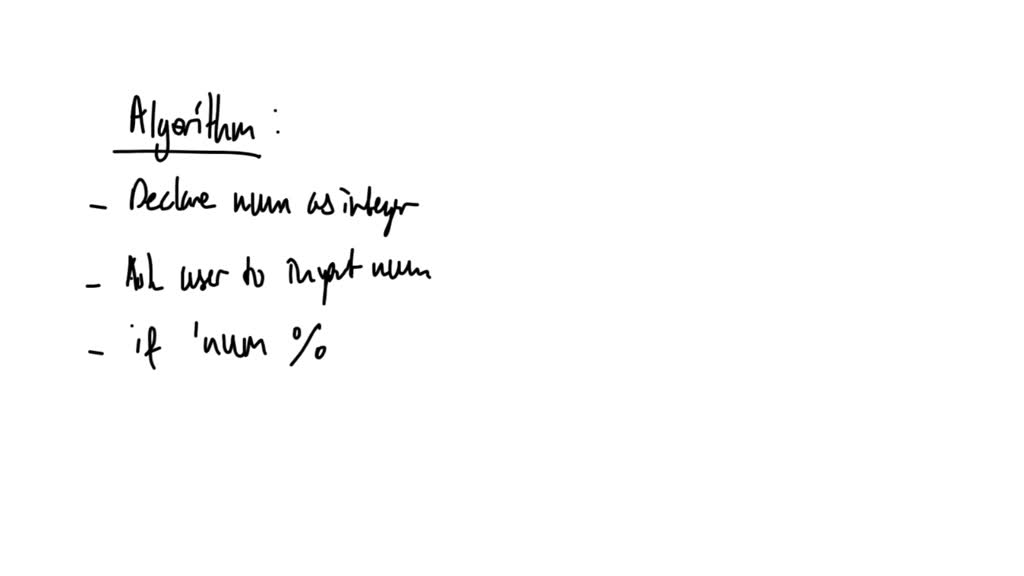 Algorithm :
- Declare num as integer
- Ask user to input num
- if 'num %